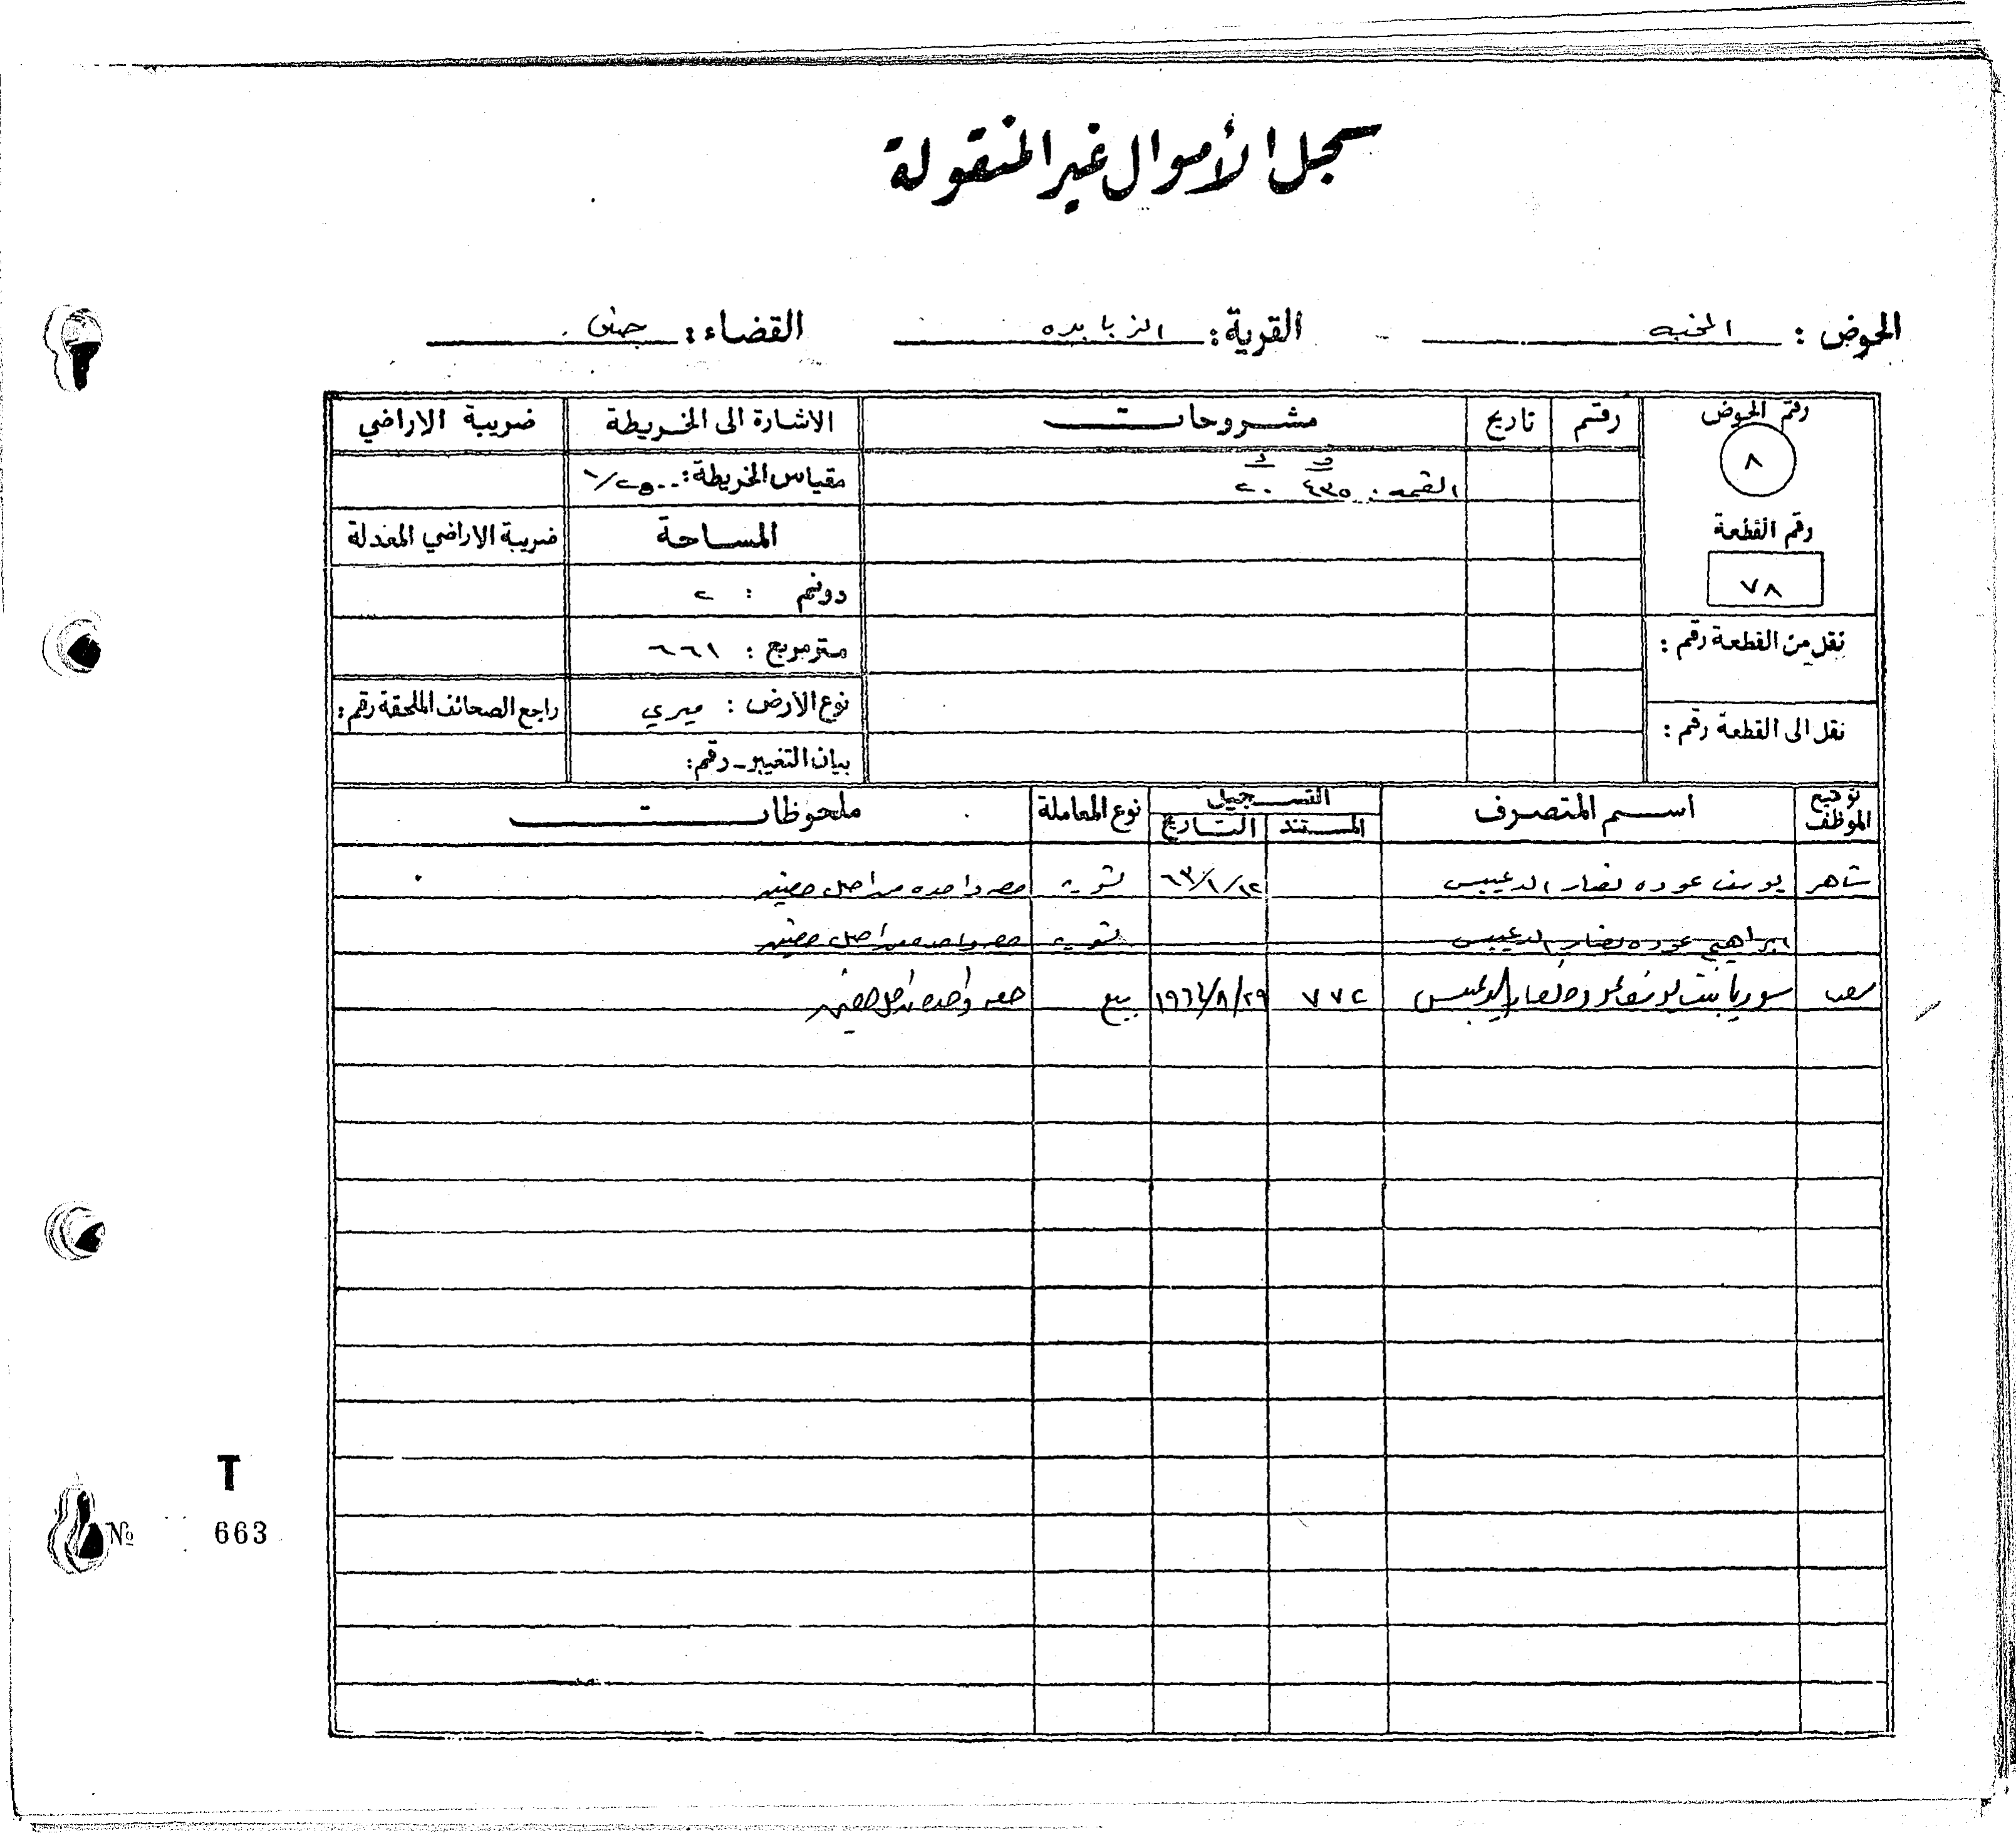 سجل الأموال غير المنقولة
الحوض : القرية : الزبابده القضاء : جنين
رقم الحوض رقم تاريخ مشروحات الاشارة الى الخريطة ضريبة الاراضي
٨ ف د
القيمه . ٤٣٥ ٢٠ مقياس الخريطة : ١/٢٥٠٠
رقم القطعة المساحة ضريبة الاراضي المعدلة
٧٨ دونم : ٢
نقل من القطعة رقم : متر مربع : ٦٦١
نوع الارض : ميري راجع الصحائف الملحقة رقم :
نقل الى القطعة رقم :
بيان التغيير - رقم :
توقيع الموظف اسم المتصرف التسجيل نوع المعاملة ملحوظات
المستند التاريخ
شاهر يوسف عوده نصار الدعيبس ٦٣/١/١٢ تسوية حصه واحده من اصل حصتين
ابراهيم عوده نصار الدعيبس تسوية حصه واحده من اصل حصتين
سوريا بنت يوسف عوده نصار الدعيبس ٧٧٢ ١٩٦٤/٨/٢٩ بيع حصه واحده من اصل حصتين
T
№ 663